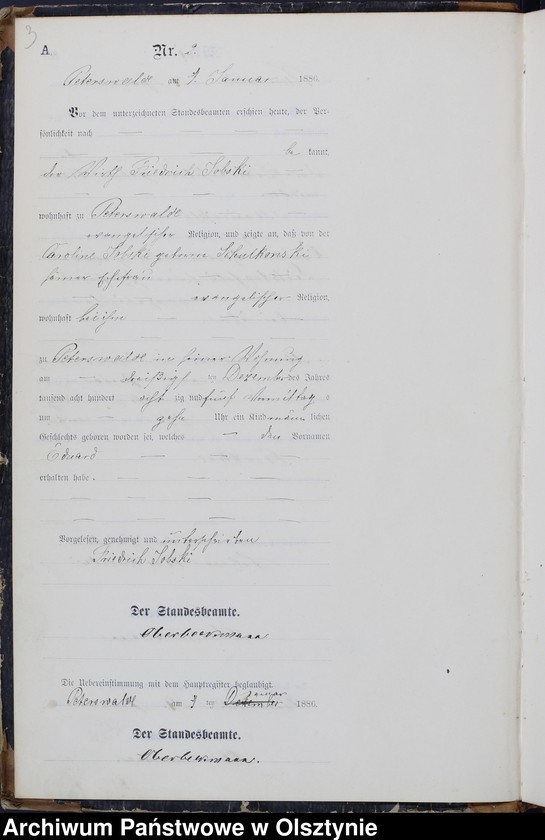 3
A Nr. 2.
Peterswalde am 7 Januar 1886.
Vor dem unterzeichneten Standesbeamten erschien heute, der Per-
sönlichkeit nach
be kannt,
der Wirth Friedrich Sobski
wohnhaft zu Peterswalde
evangelischer Religion, und zeigte an, daß von der
Caroline Sobski geborne
seiner Ehefrau
evangelischer Religion,
wohnhaft bei ihm
zu Peterswalde in seiner Wohnung
am dreißigsten Dezember des Jahres
tausend acht hundert acht zig und fünf Vormittags
um zehn Uhr ein Kind männlichen
Geschlechts geboren worden sei, welches den Vornamen
Eduard
erhalten habe.
Vorgelesen, genehmigt und unterschrieben
Friedrich Sobski
Der Standesbeamte.
Die Uebereinstimmung mit dem Hauptregister beglaubigt.
Januar
Peterswalde am 7 ten Dezember 1886.
Der Standesbeamte.
Archiwum Państwowe w Olsztynie